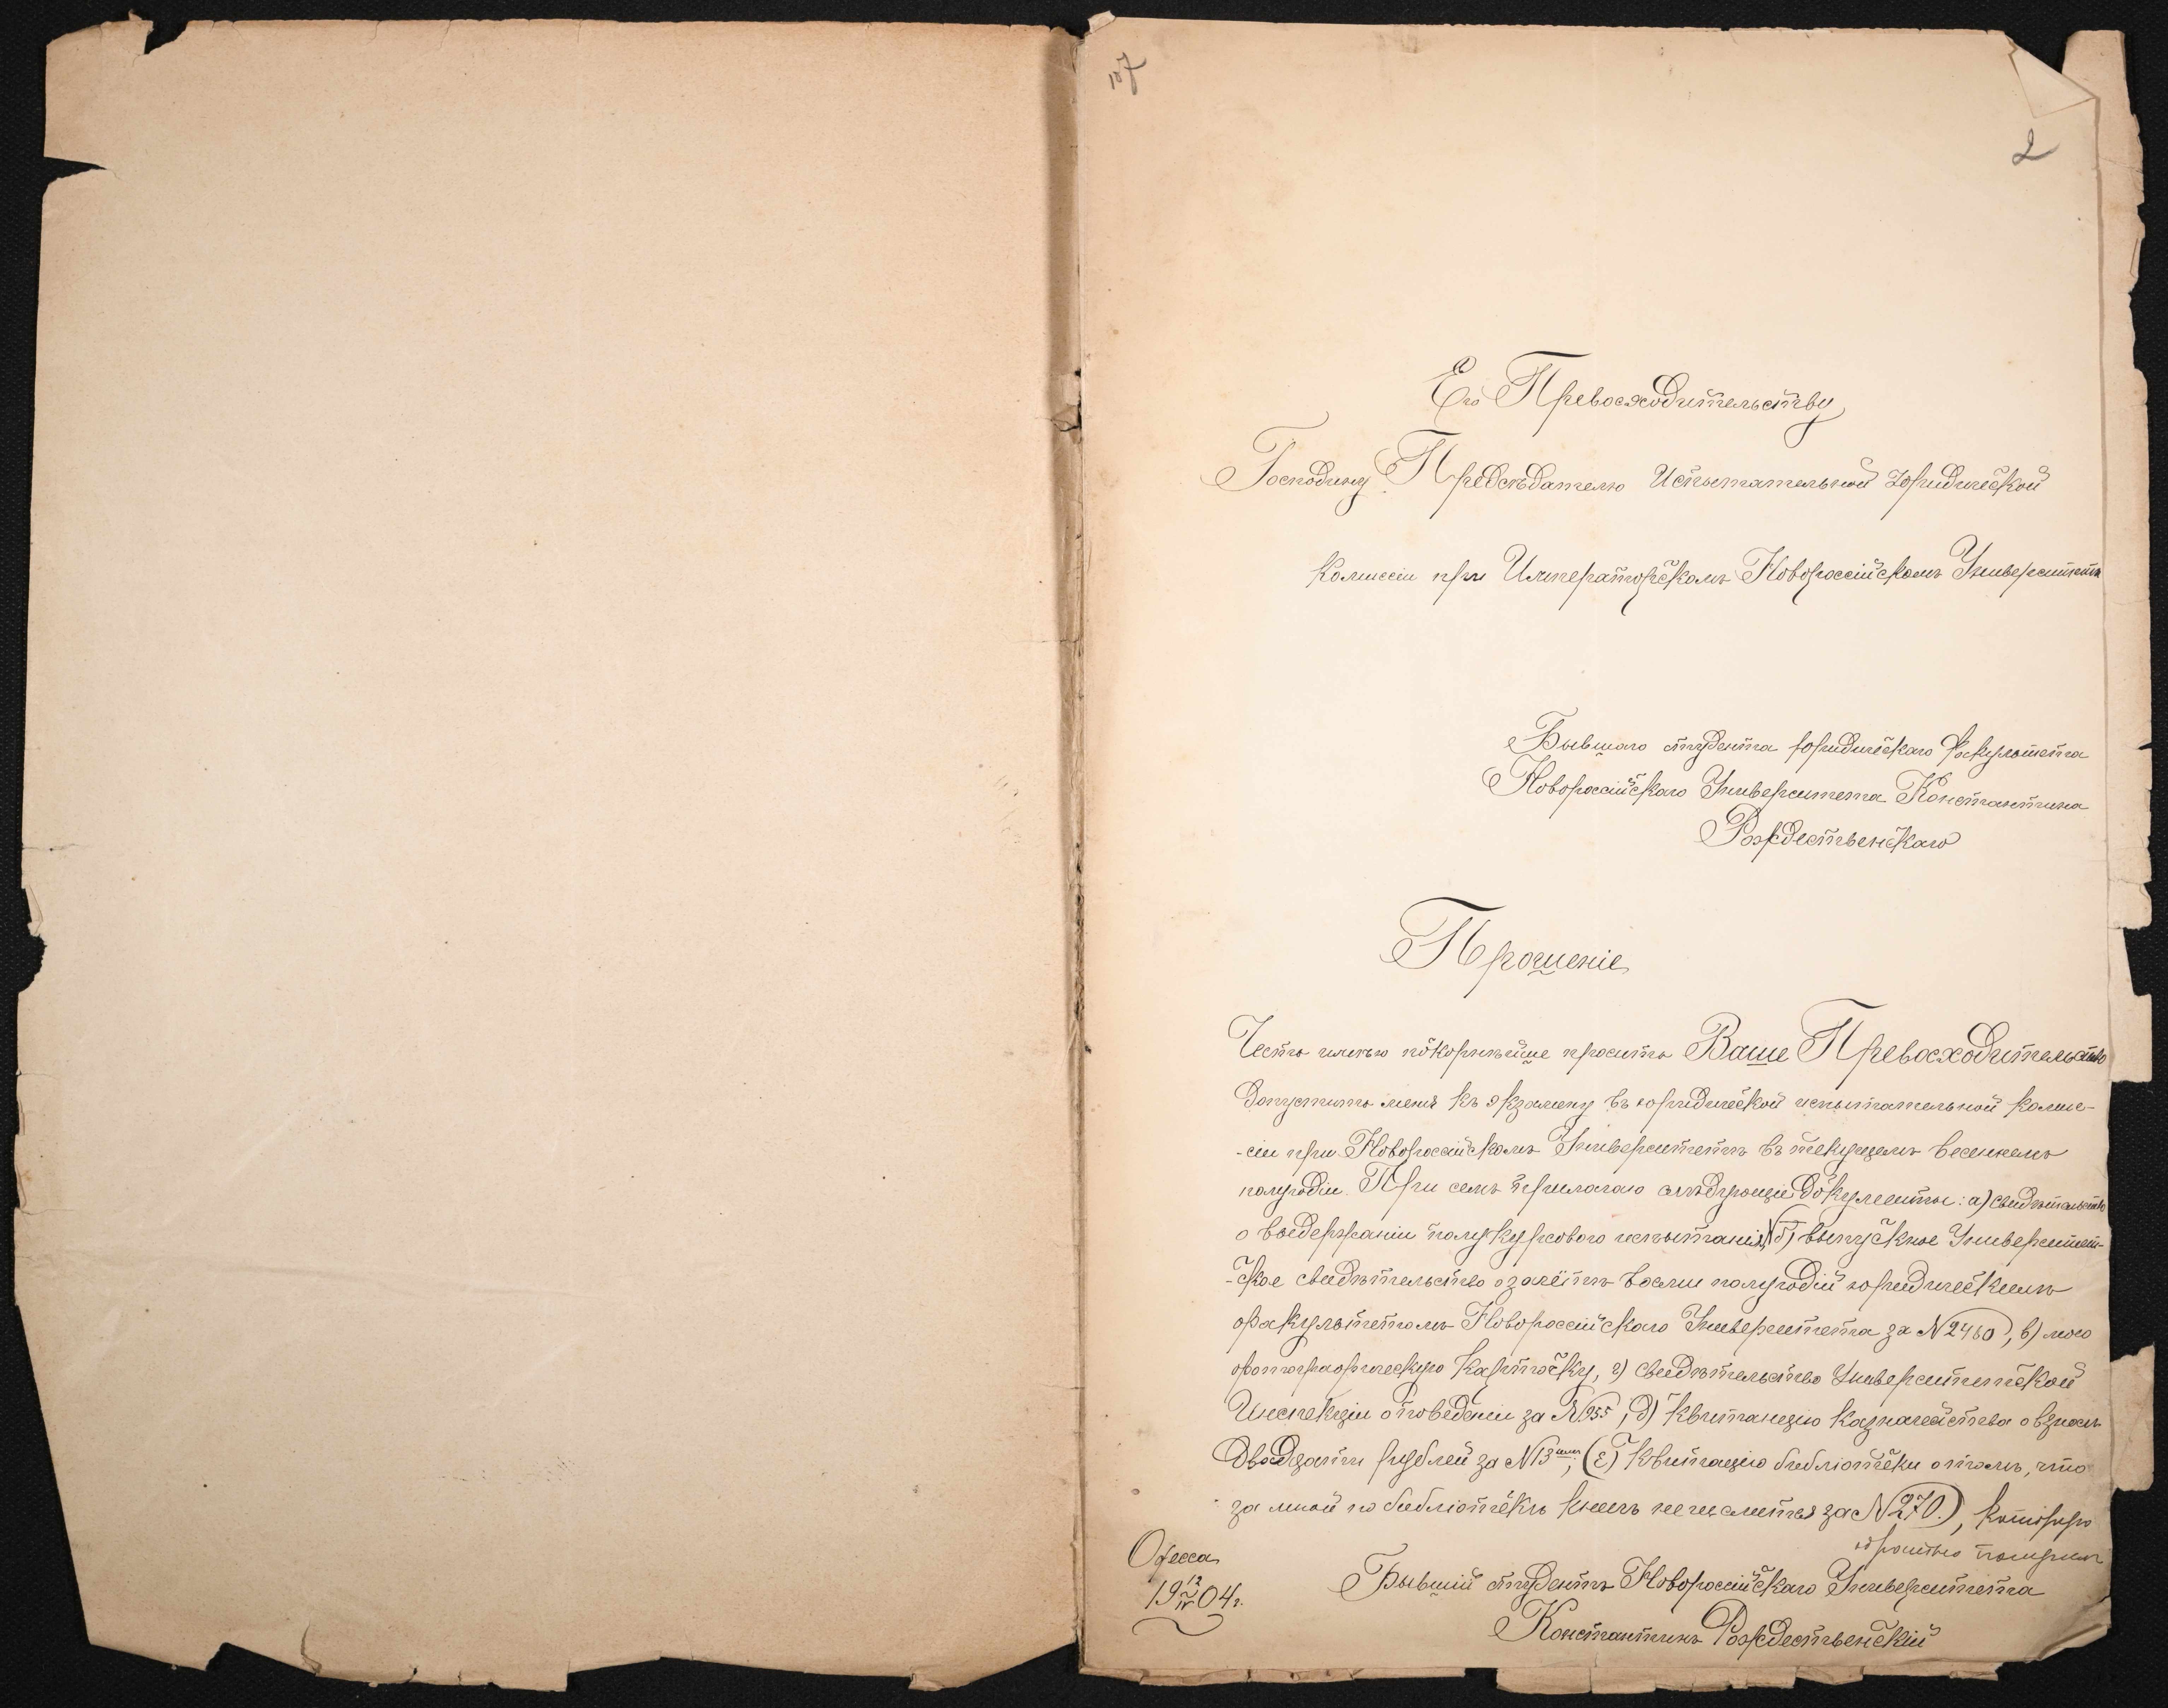 107
2
Его Превосходительству
Господину Предсѣдателю Испытательной Юридической
комиссіи при Императорскомъ Новороссійскомъ Университетѣ
Бывшаго студента юридическаго факультета
Новороссійскаго Университета Константина
Рождественскаго
Прошеніе
Честь имѣю покорнѣйше просить Ваше Превосходительство
допустить меня къ экзамену въ юридической испытательной комис-
-сіи при Новороссійскомъ Университетѣ въ текущемъ весеннемъ
полугодіи. При семъ прилагаю слѣдующіе документы: а) свидѣтельство
о выдержаніи полукурсового испытанія, б) выпускное Университет-
-ское свидѣтельство о зачётѣ восьми полугодій юридическимъ
факультетомъ Новороссійскаго Университета за №2460, в) мою
фотографическую карточку, г) свидѣтельство Университетской
Инспекціи о поведеніи за №955, д) квитанцію казначейства о взносѣ
двадцати рублей за №13, (е) квитанцію библіотеки о томъ, что
за мной по библіотекѣ книгъ не числится за №270.), которую
обратно получилъ
Одесса
19 12/IV 04 г.
Бывшій студентъ Новороссійскаго Университета
Константинъ Рождественскій